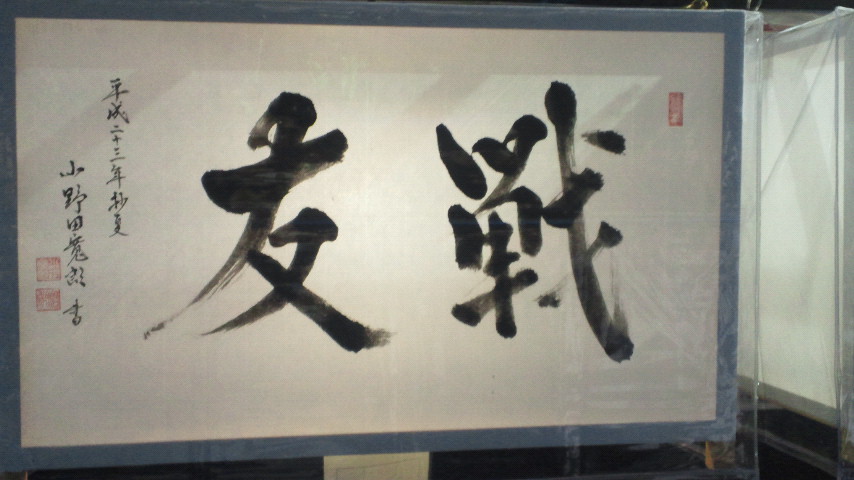 戦友
平成二十三年抄夏
小野田寛郎書